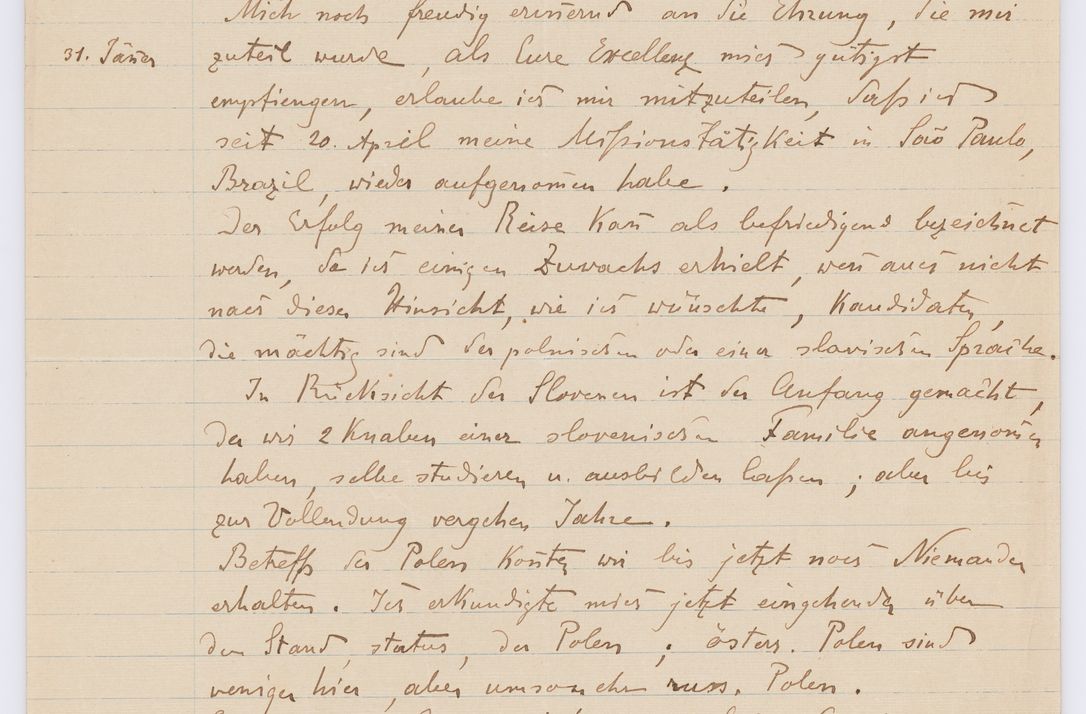 Mich noch freudig erinnernd an die Ehrung, die mir
31. Jäner
zuteil wurde, als Eure Excellenz mich gütigst
empfiengen, erlaube ich mir mitzuteilen, daß ich
seit 20. April meine Missionstätigkeit in São Paulo,
Brazil, wieder aufgenom̄en habe.
Der Erfolg meiner Reise kan̄ als befriedigend bezeichnet
werden, da ich einigen Zuwachs erhielt, wen̄ auch nicht
nach dieser Hinsicht, wie ich wünschte, Kandidaten,
die mächtig sind der polnischen oder einer slavischen Sprache.
In Rücksicht der Slovenen ist der Anfang gemacht,
da wir 2 Knaben einer slovenischen Familie angenom̄en
haben, selbe studieren u. ausbilden laßen; aber bis
zur Vollendung vergehen Jahre.
Betreffs der Polen kon̄ten wir bis jetzt noch Niemanden
erhalten. Ich erkundigte mich jetzt eingehender über
den Stand, status, der Polen; österr. Polen sind
weniger hier, aber umsomehr russ. Polen.